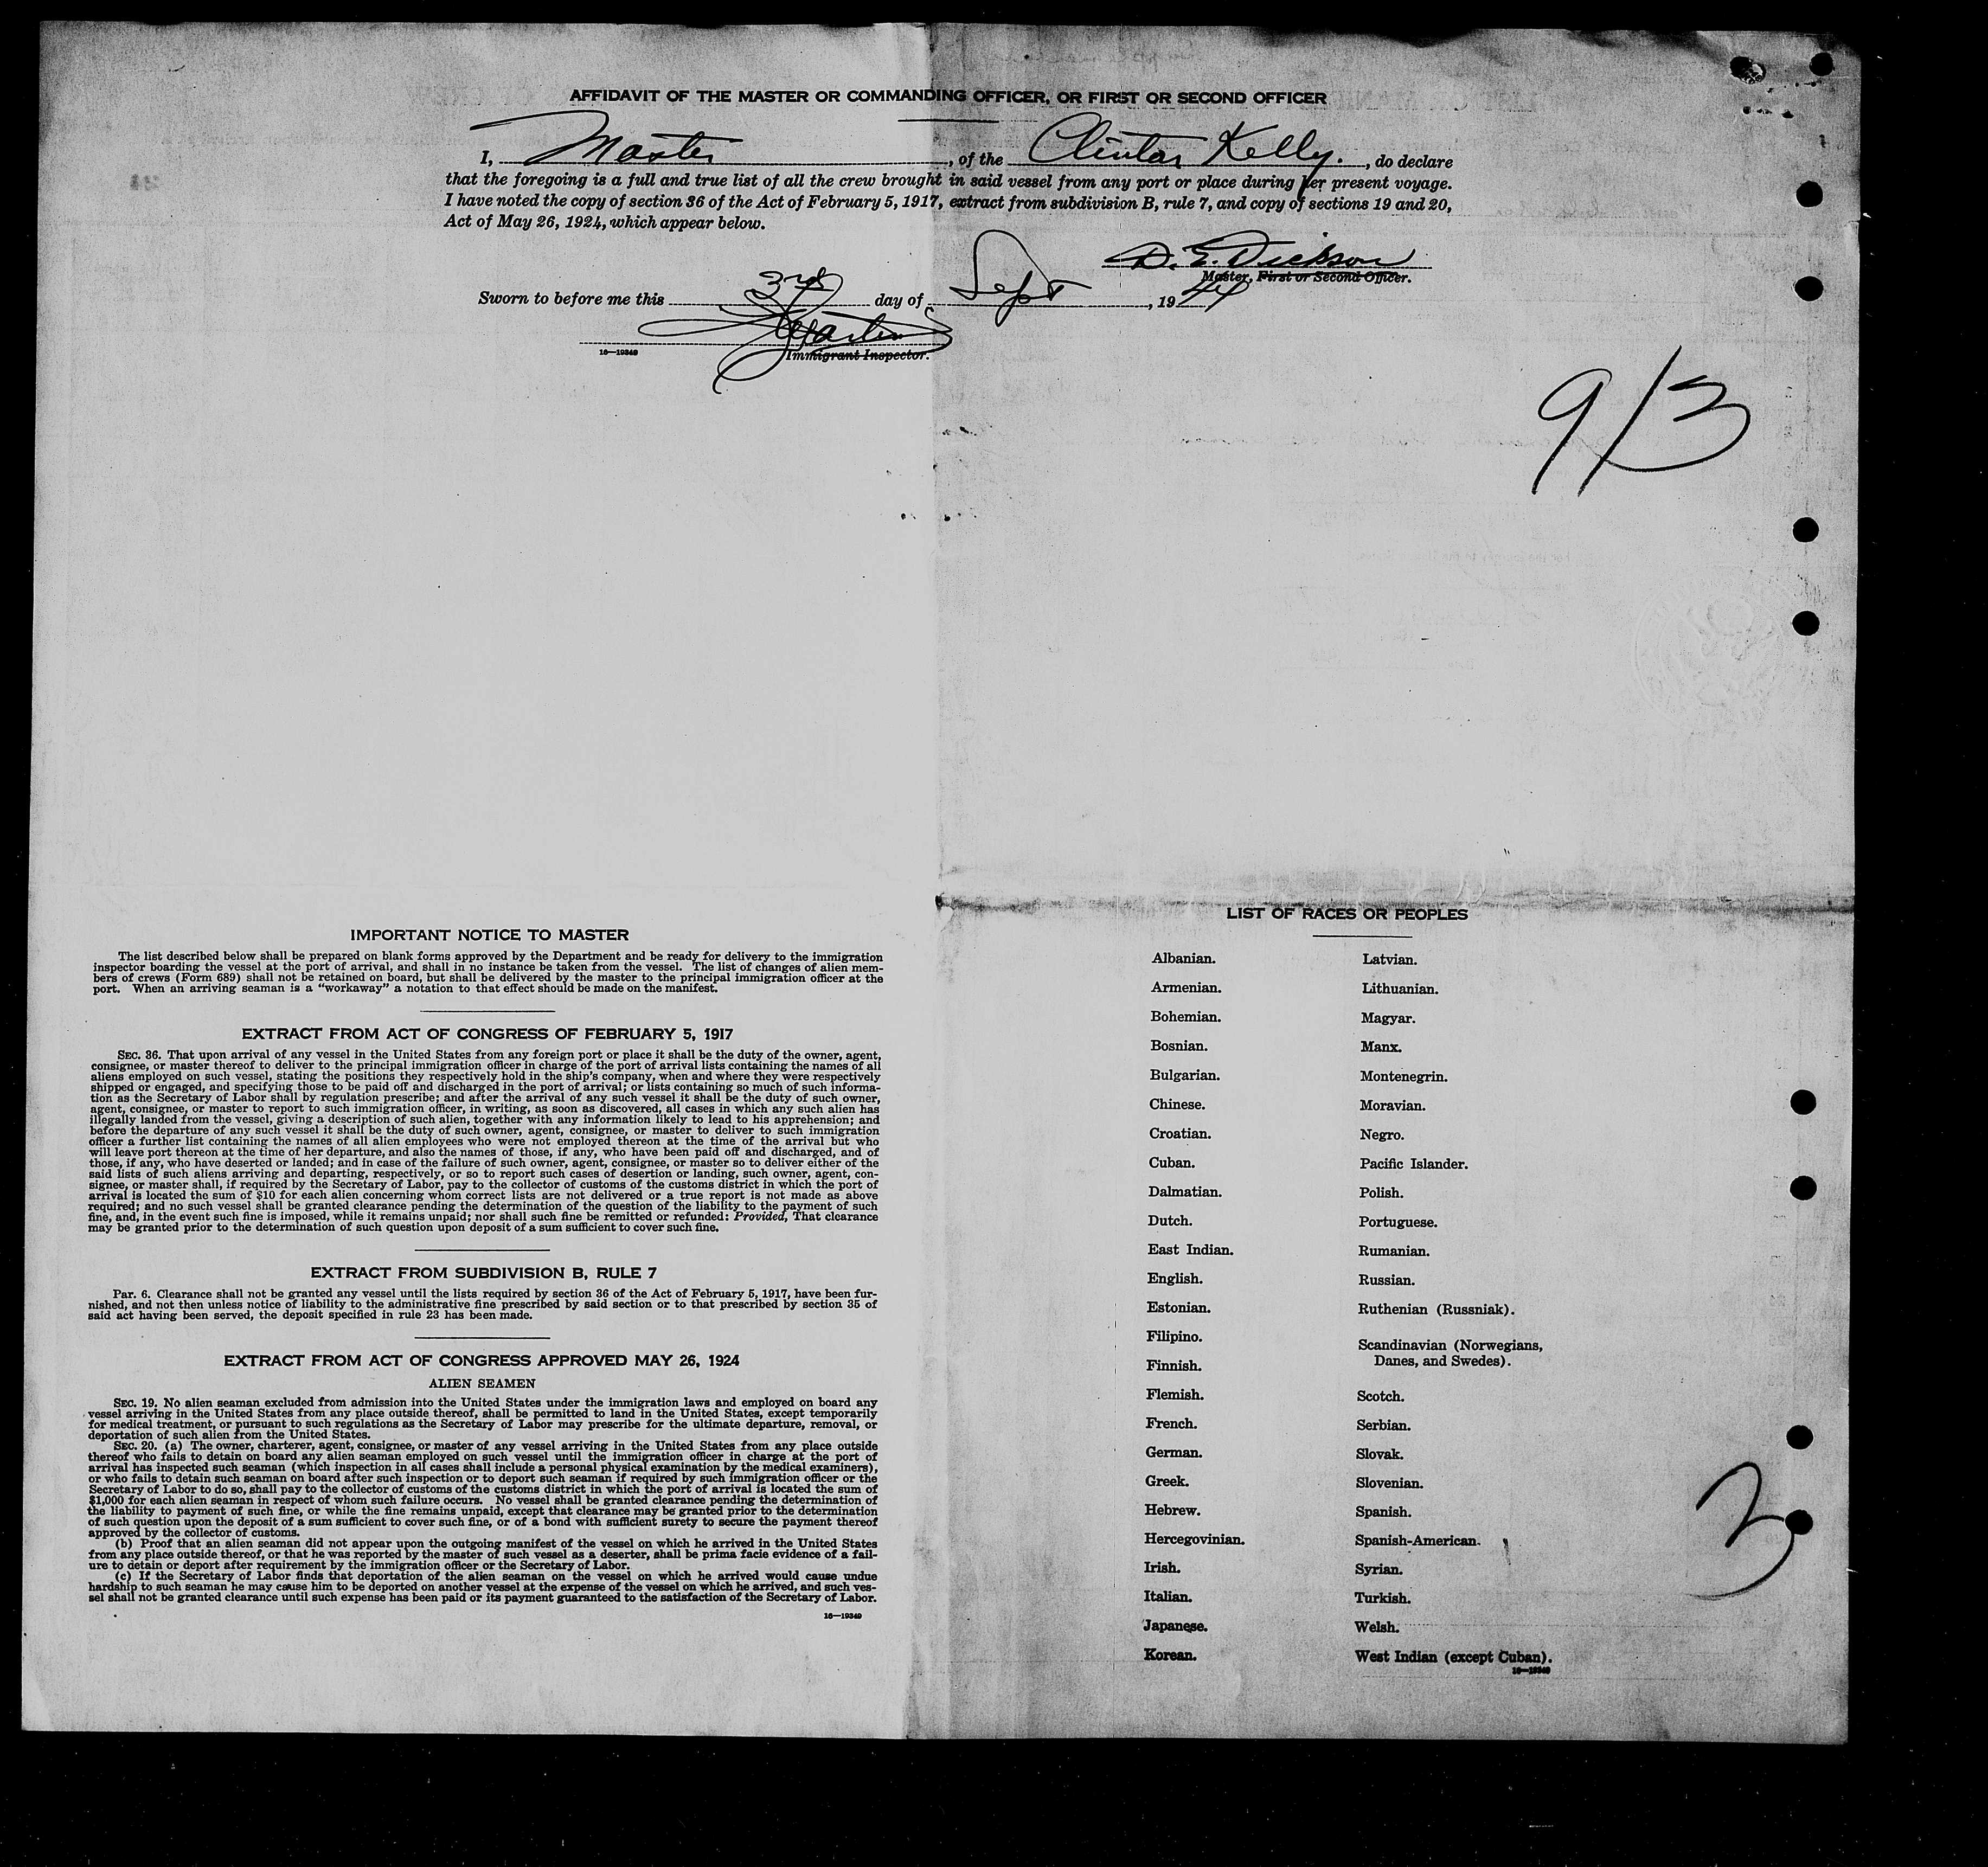 AFFIDAVIT OF THE MASTER OR COMMANDING OFFICER, OR FIRST OR SECOND OFFICER
I, Master, of the Clinton Kelly., do declare
that the foregoing is a full and true list of all the crew brought in said vessel from any port or place during her present voyage.
I have noted the copy of section 36 of the Act of February 5, 1917, extract from subdivision B, rule 7, and copy of sections 19 and 20,
Act of May 26, 1924, which appear below.
D. E. Dickson
Master, First or Second Officer.
Sworn to before me this 3rd day of Sept, 1944
16—19349
Immigrant Inspector.
9/3
IMPORTANT NOTICE TO MASTER
The list described below shall be prepared on blank forms approved by the Department and be ready for delivery to the immigration
inspector boarding the vessel at the port of arrival, and shall in no instance be taken from the vessel. The list of changes of alien mem-
bers of crews (Form 689) shall not be retained on board, but shall be delivered by the master to the principal immigration officer at the
port. When an arriving seaman is a "workaway" a notation to that effect should be made on the manifest.
EXTRACT FROM ACT OF CONGRESS OF FEBRUARY 5, 1917
SEC. 36. That upon arrival of any vessel in the United States from any foreign port or place it shall be the duty of the owner, agent,
consignee, or master thereof to deliver to the principal immigration officer in charge of the port of arrival lists containing the names of all
aliens employed on such vessel, stating the positions they respectively hold in the ship's company, when and where they were respectively
shipped or engaged, and specifying those to be paid off and discharged in the port of arrival; or lists containing so much of such informa-
tion as the Secretary of Labor shall by regulation prescribe; and after the arrival of any such vessel it shall be the duty of such owner,
agent, consignee, or master to report to such immigration officer, in writing, as soon as discovered, all cases in which any such alien has
illegally landed from the vessel, giving a description of such alien, together with any information likely to lead to his apprehension; and
before the departure of any such vessel it shall be the duty of such owner, agent, consignee, or master to deliver to such immigration
officer a further list containing the names of all alien employees who were not employed thereon at the time of the arrival but who
will leave port thereon at the time of her departure, and also the names of those, if any, who have been paid off and discharged, and of
those, if any, who have deserted or landed; and in case of the failure of such owner, agent, consignee, or master so to deliver either of the
said lists of such aliens arriving and departing, respectively, or so to report such cases of desertion or landing, such owner, agent, con-
signee, or master shall, if required by the Secretary of Labor, pay to the collector of customs of the customs district in which the port of
arrival is located the sum of $10 for each alien concerning whom correct lists are not delivered or a true report is not made as above
required; and no such vessel shall be granted clearance pending the determination of the question of the liability to the payment of such
fine, and, in the event such fine is imposed, while it remains unpaid; nor shall such fine be remitted or refunded: Provided, That clearance
may be granted prior to the determination of such question upon deposit of a sum sufficient to cover such fine.
EXTRACT FROM SUBDIVISION B, RULE 7
Par. 6. Clearance shall not be granted any vessel until the lists required by section 36 of the Act of February 5, 1917, have been fur-
nished, and not then unless notice of liability to the administrative fine prescribed by said section or to that prescribed by section 35 of
said act having been served, the deposit specified in rule 23 has been made.
EXTRACT FROM ACT OF CONGRESS APPROVED MAY 26, 1924
ALIEN SEAMEN
SEC. 19. No alien seaman excluded from admission into the United States under the immigration laws and employed on board any
vessel arriving in the United States from any place outside thereof, shall be permitted to land in the United States, except temporarily
for medical treatment, or pursuant to such regulations as the Secretary of Labor may prescribe for the ultimate departure, removal, or
deportation of such alien from the United States.
SEC. 20. (a) The owner, charterer, agent, consignee, or master of any vessel arriving in the United States from any place outside
thereof who fails to detain on board any alien seaman employed on such vessel until the immigration officer in charge at the port of
arrival has inspected such seaman (which inspection in all cases shall include a personal physical examination by the medical examiners),
or who fails to detain such seaman on board after such inspection or to deport such seaman if required by such immigration officer or the
Secretary of Labor to do so, shall pay to the collector of customs of the customs district in which the port of arrival is located the sum of
$1,000 for each alien seaman in respect of whom such failure occurs. No vessel shall be granted clearance pending the determination of
the liability to payment of such fine, or while the fine remains unpaid, except that clearance may be granted prior to the determination
of such question upon the deposit of a sum sufficient to cover such fine, or of a bond with sufficient surety to secure the payment thereof
approved by the collector of customs.
(b) Proof that an alien seaman did not appear upon the outgoing manifest of the vessel on which he arrived in the United States
from any place outside thereof, or that he was reported by the master of such vessel as a deserter, shall be prima facie evidence of a fail-
ure to detain or deport after requirement by the immigration officer or the Secretary of Labor.
(c) If the Secretary of Labor finds that deportation of the alien seaman on the vessel on which he arrived would cause undue
hardship to such seaman he may cause him to be deported on another vessel at the expense of the vessel on which he arrived, and such ves-
sel shall not be granted clearance until such expense has been paid or its payment guaranteed to the satisfaction of the Secretary of Labor.
16—19349
LIST OF RACES OR PEOPLES
Albanian.
Armenian.
Bohemian.
Bosnian.
Bulgarian.
Chinese.
Croatian.
Cuban.
Dalmatian.
Dutch.
East Indian.
English.
Estonian.
Filipino.
Finnish.
Flemish.
French.
German.
Greek.
Hebrew.
Hercegovinian.
Irish.
Italian.
Japanese.
Korean.
Latvian.
Lithuanian.
Magyar.
Manx.
Montenegrin.
Moravian.
Negro.
Pacific Islander.
Polish.
Portuguese.
Rumanian.
Russian.
Ruthenian (Russniak).
Scandinavian (Norwegians,
Danes, and Swedes).
Scotch.
Serbian.
Slovak.
Slovenian.
Spanish.
Spanish-American.
Syrian.
Turkish.
Welsh.
West Indian (except Cuban).
16—19349
3